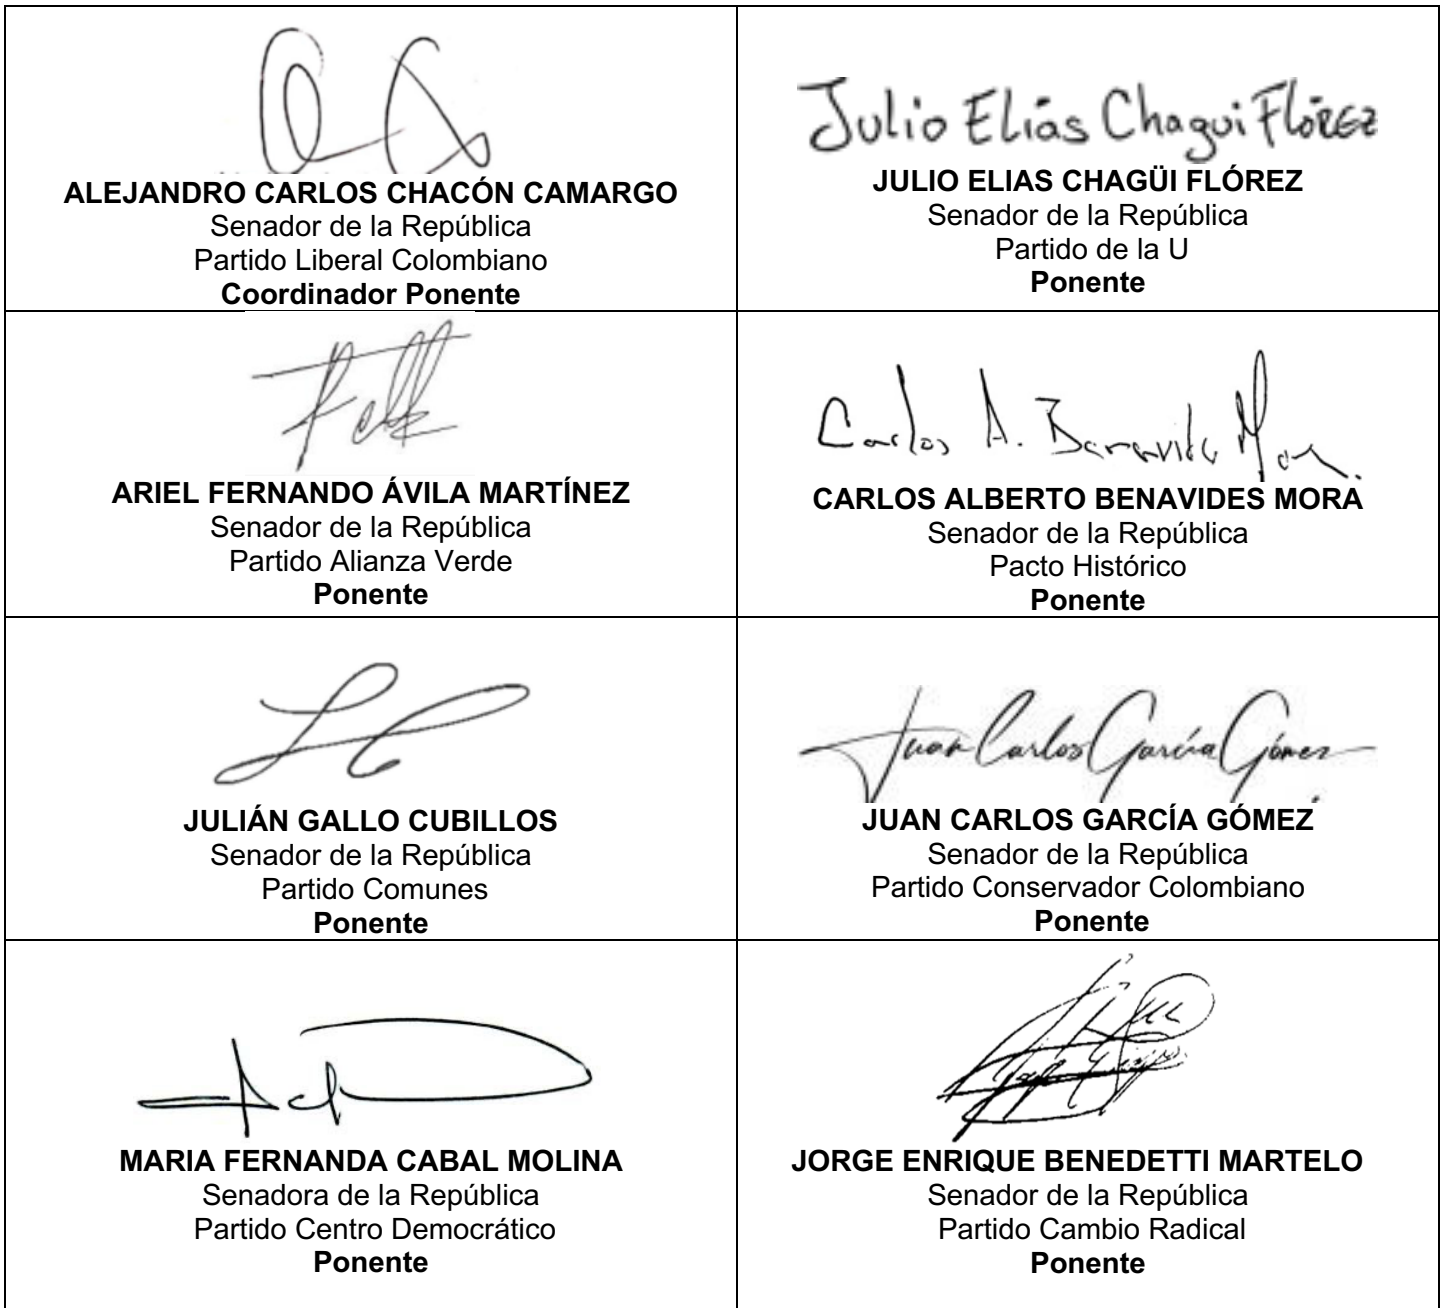 ALEJANDRO CARLOS CHACÓN CAMARGO
Senador de la República
Partido Liberal Colombiano
Coordinador Ponente
Julio Elías Chagui Flórez
JULIO ELIAS CHAGÜI FLÓREZ
Senador de la República
Partido de la U
Ponente
ARIEL FERNANDO ÁVILA MARTÍNEZ
Senador de la República
Partido Alianza Verde
Ponente
Carlos A. Benavides Mora
CARLOS ALBERTO BENAVIDES MORA
Senador de la República
Pacto Histórico
Ponente
JULIÁN GALLO CUBILLOS
Senador de la República
Partido Comunes
Ponente
Juan Carlos García Gómez
JUAN CARLOS GARCÍA GÓMEZ
Senador de la República
Partido Conservador Colombiano
Ponente
MARIA FERNANDA CABAL MOLINA
Senadora de la República
Partido Centro Democrático
Ponente
JORGE ENRIQUE BENEDETTI MARTELO
Senador de la República
Partido Cambio Radical
Ponente